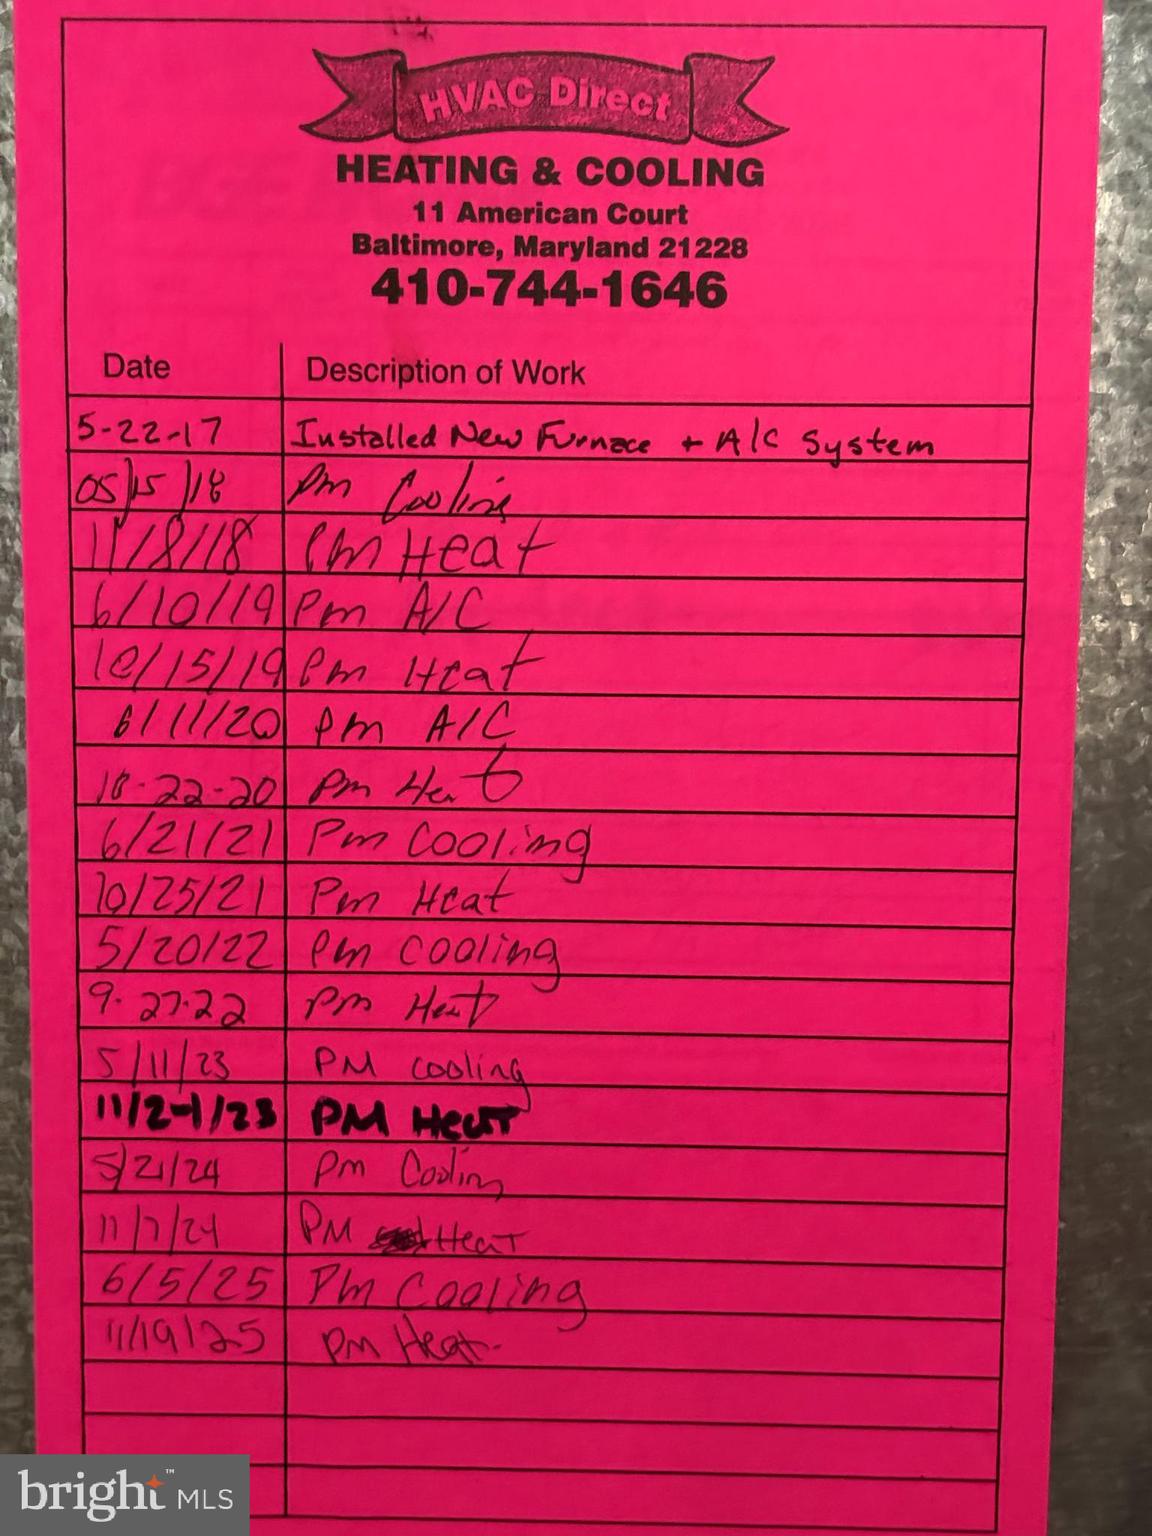 HVAC Direct
HEATING & COOLING
11 American Court
Baltimore, Maryland 21228
410-744-1646
Date Description of Work
5-22-17 Installed New Furnace + A/C System
05/15/18 Pm Cooling
11/8/18 Pm Heat
6/10/19 Pm A/C
10/15/19 Pm Heat
6/11/20 Pm A/C
10-22-20 Pm Heat
6/21/21 Pm Cooling
10/25/21 Pm Heat
5/20/22 Pm Cooling
9-27-22 Pm Heat
5/11/23 PM Cooling
11/2-1/23 PM Heat
5/21/24 Pm Cooling
11/7/24 PM Heat
6/5/25 Pm Cooling
11/19/25 PM Heat
bright™ MLS